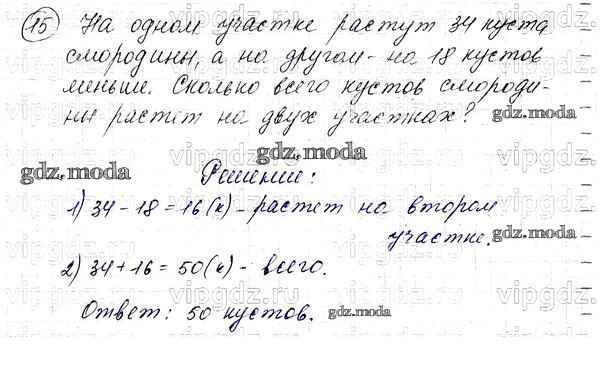 15 На одном участке растут 34 куста
смородины, а на другом - на 18 кустов
меньше. Сколько всего кустов смороди-
ны растет на двух участках?
gdz.moda
gdz.moda
Решение:
1) 34 - 18 = 16 (к) - растет на втором
участке.
gdz.moda
2) 34 + 16 = 50 (к) - всего.
Ответ: 50 кустов.
gdz.moda
vipgdz.ru